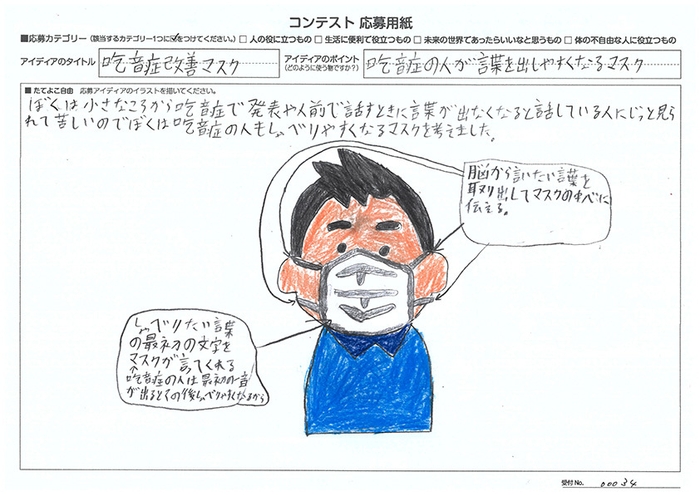 コンテスト 応募用紙
■応募カテゴリー (該当するカテゴリー1つに☑をつけてください。) □ 人の役に立つもの □ 生活に便利で役立つもの □ 未来の世界であったらいいなと思うもの □ 体の不自由な人に役立つもの
アイディアのタイトル 吃音症改善マスク
アイディアのポイント (どのように使う物ですか?) 吃音症の人が言葉を出しやすくなるマスク
■たてよこ自由 応募アイディアのイラストを描いてください。
ぼくは小さなころから吃音症で発表や人前で話すときに言葉が出なくなると話している人にじっと見ら
れて苦しいのでぼくは吃音症の人もしゃべりやすくなるマスクを考えました。
脳から言いたい言葉を
取り出してマスクのすべに
伝える。
しゃべりたい言葉
の最初の文字を
マスクが言ってくれる
吃音症の人は最初の一音
が出るとその後しゃべりやすくなるから
受付No. 00034